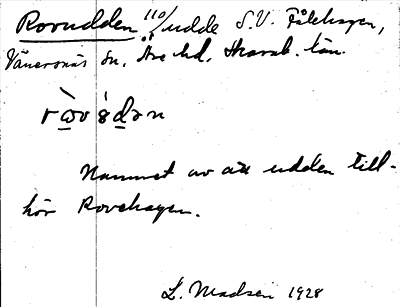 Rovudden 110/ udde S.V. Fålehagen,
Vänersnäs sn, Åse hd, Skarab. län.
ròvsdən
Namnet av att udden till-
hör Rovehagen.
L. Madsen 1928